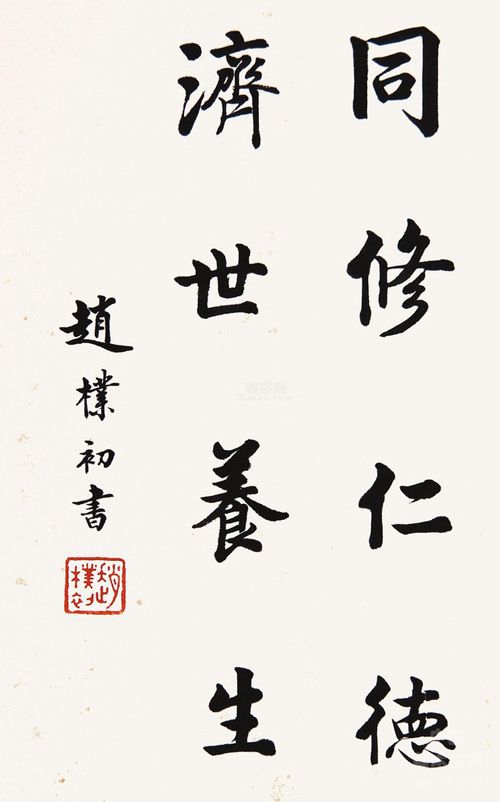 同修仁德
濟世養生
趙樸初書
趙樸初